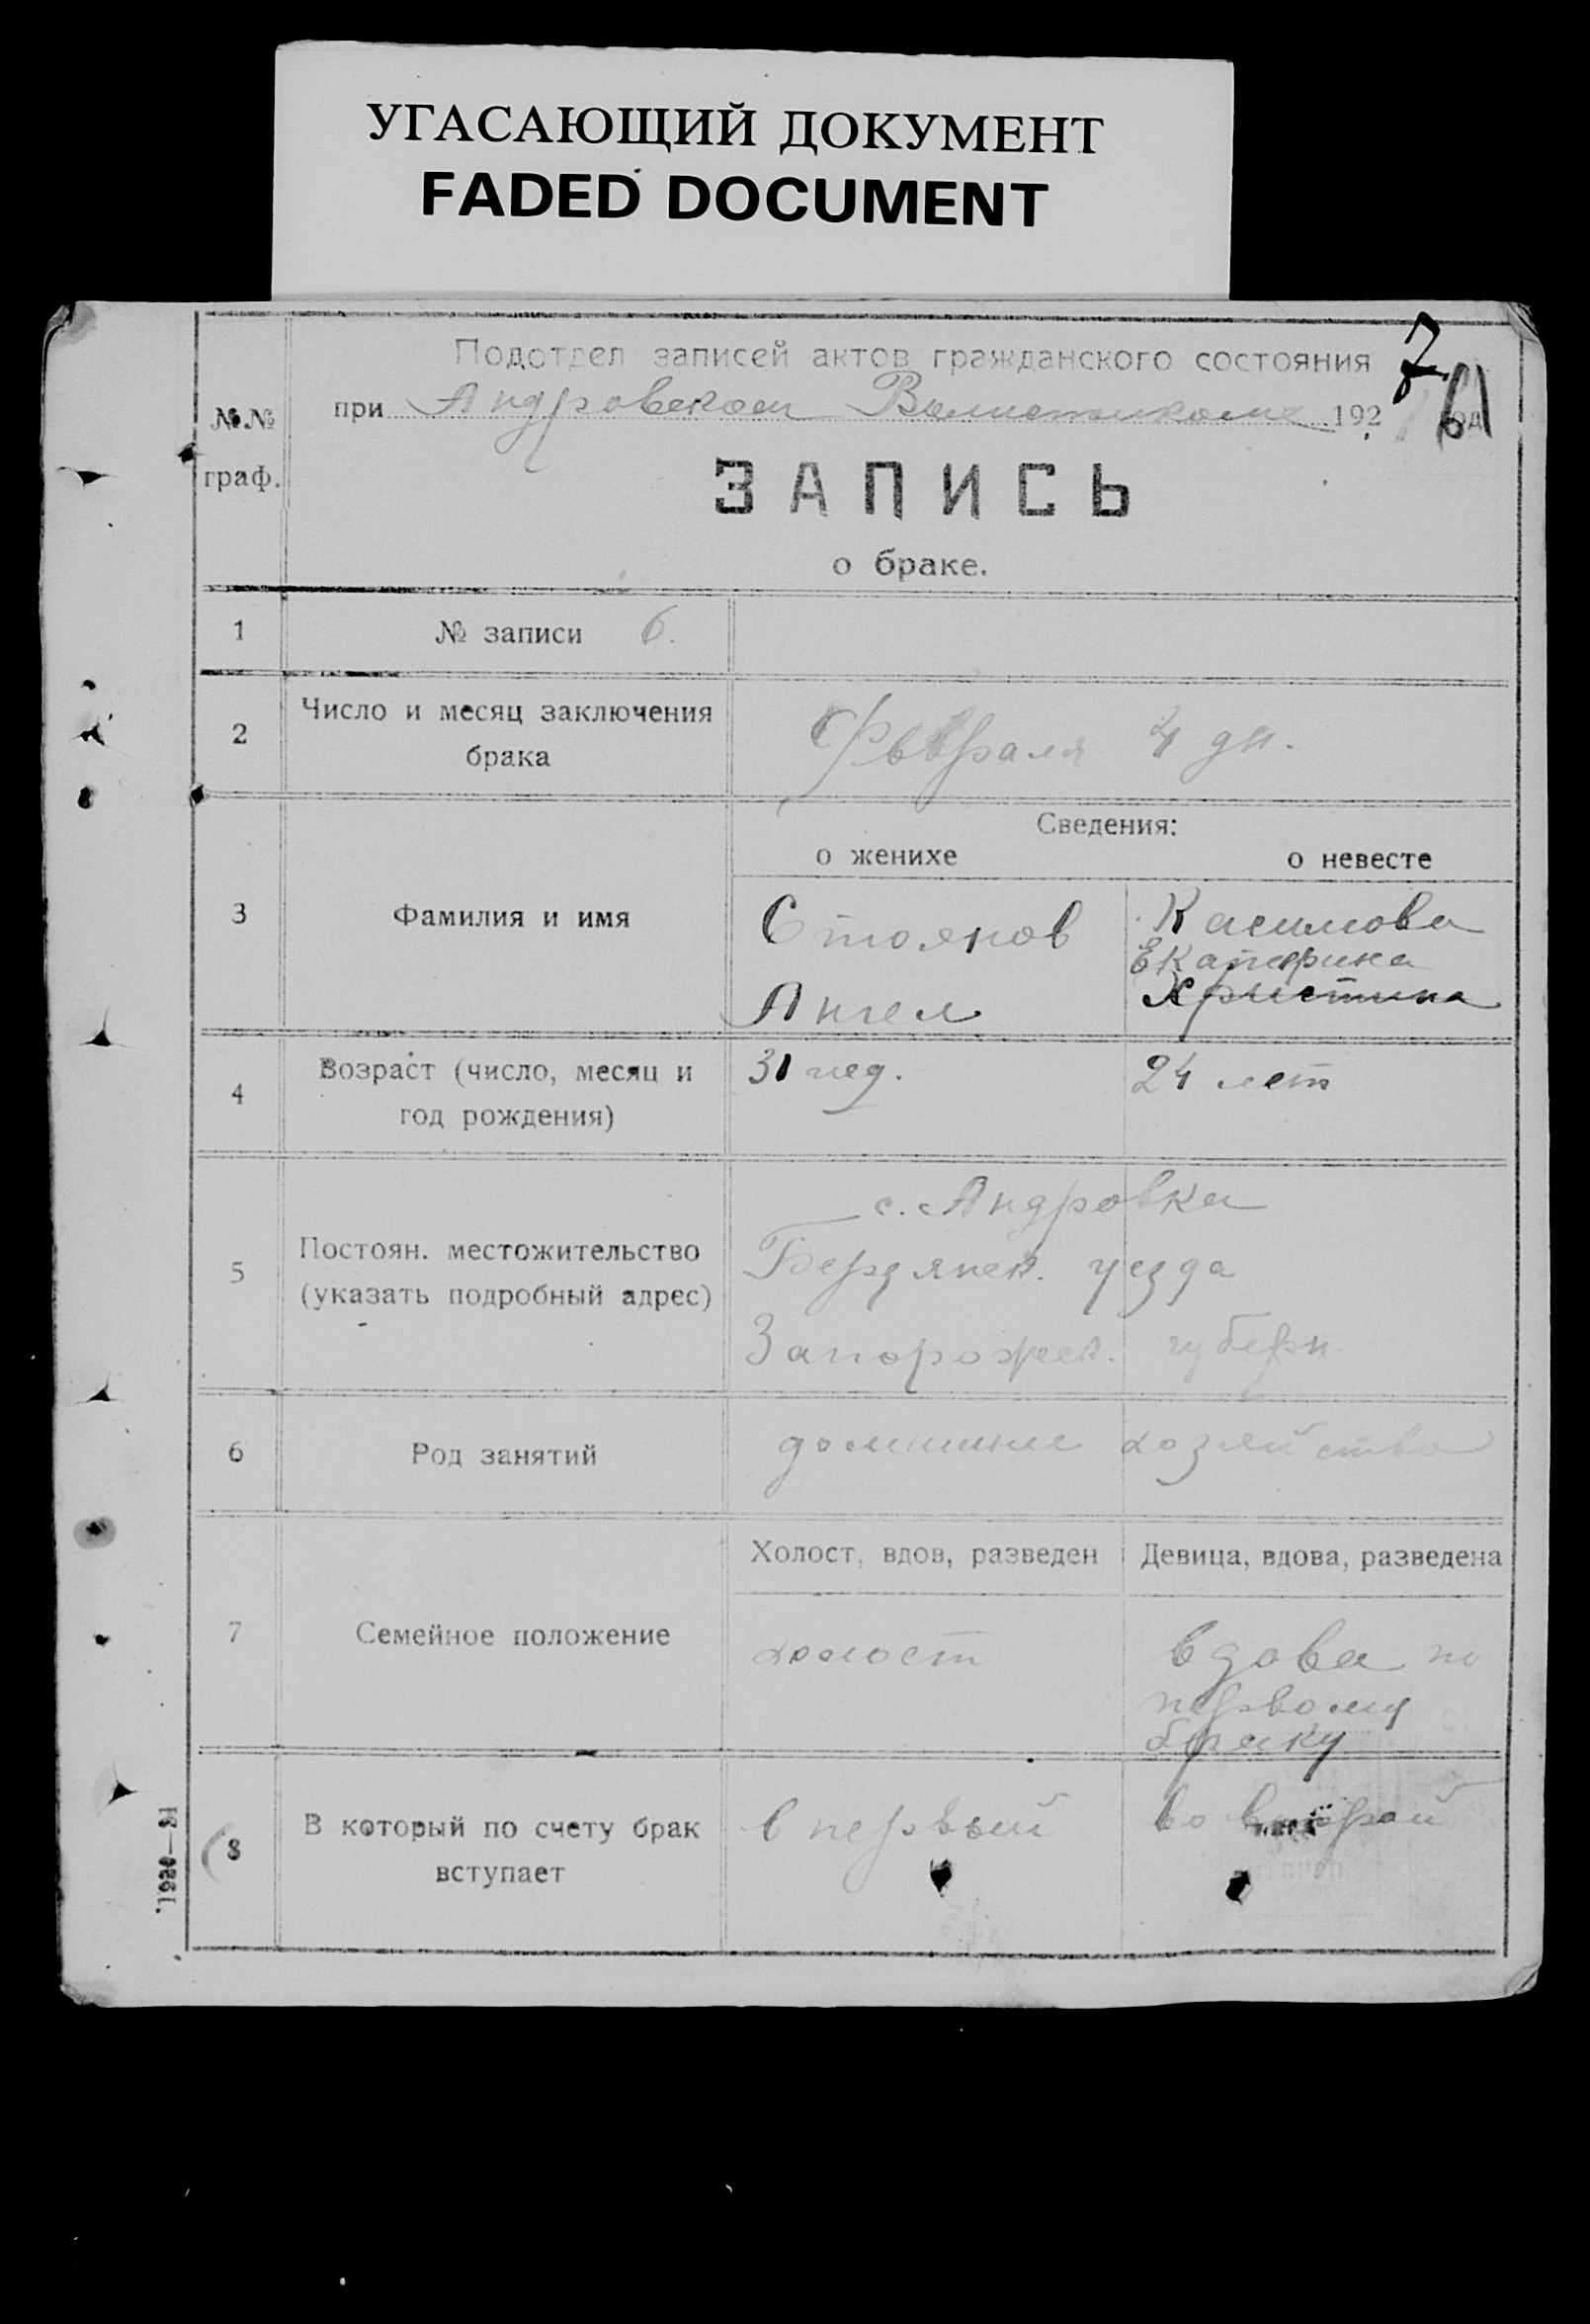 УГАСАЮЩИЙ ДОКУМЕНТ
FADED DOCUMENT
7
Подотдел записей актов гражданского состояния
при Андровском 192 год
61
№№
граф.
ЗАПИСЬ
о браке.
1 № записи 6.
2 Число и месяц заключения
брака
Февраля 4 дн.
Сведения:
о женихе о невесте
3 Фамилия и имя
Стоянов Касимова
Екатерина
Ангел Христина
4 Возраст (число, месяц и
год рождения)
31 24 лет
5 Постоян. местожительство
(указать подробный адрес)
с. Андровка
Бердянск. уезда
Запорожск. губерн
6 Род занятий
домашнее хозяйство
7 Семейное положение
Холост, вдов, разведен Девица, вдова, разведена
холост вдова по
первому
браку
8 В который по счету брак
вступает
в первый во второй